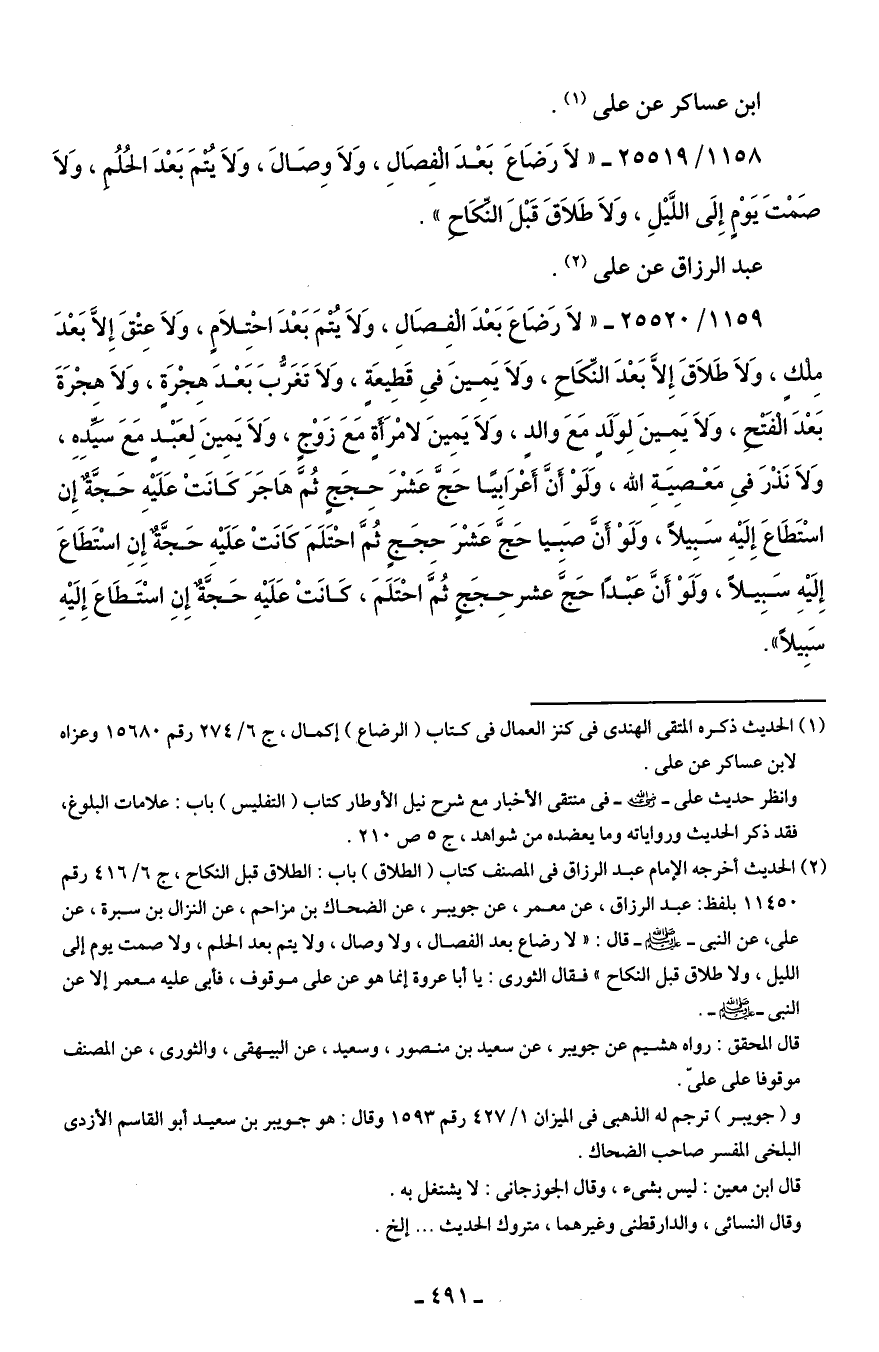 ابن عساكر عن على (١) .
٢٥٥١٩/١١٥٨ ـ « لاَ رَضَاعَ بَعْدَ الْفِصَالِ ، وَلاَ وِصَالَ ، وَلاَ يُتْمَ بَعْدَ الحُلُمِ ، وَلاَ
صَمْتَ يَوْمٍ إِلَى اللَّيْلِ ، وَلاَ طَلاَقَ قَبْلَ النِّكَاحِ » .
عبد الرزاق عن على (٢) .
٢٥٥٢٠/١١٥٩ ـ « لاَ رَضَاعَ بَعْدَ الْفِصَالِ ، وَلاَ يُتْمَ بَعْدَ احْتِلاَمٍ ، وَلاَ عِتْقَ إِلاَّ بَعْدَ
مِلْكٍ ، وَلاَ طَلاَقَ إِلاَّ بَعْدَ النِّكَاحِ ، وَلاَ يَمِينَ فِى قَطِيعَةٍ ، وَلاَ تَغَرُّبَ بَعْدَ هِجْرَةٍ ، وَلاَ هِجْرَةَ
بَعْدَ الْفَتْحِ ، وَلاَ يَمِينَ لِوَلَدٍ مَعَ والدٍ ، وَلاَ يَمِينَ لامْرَأَةٍ مَعَ زَوْجٍ ، وَلاَ يَمِينَ لِعَبْدٍ مَعَ سَيِّدِهِ ،
وَلاَ نَذْرَ فِى مَعْصِيَةِ الله ، وَلَوْ أَنَّ أَعْرَابِيّا حَجَّ عَشْرَ حِجَجٍ ثُمَّ هَاجَرَ كَانَتْ عَلَيْهِ حَجَّةٌ إِنِ
اسْتَطَاعَ إِلَيْهِ سَبِيلاً ، وَلَوْ أَنَّ صَبِيا حَجَّ عَشْرَ حِجَجٍ ثُمَّ احْتَلَمَ كَانَتْ عَلَيْهِ حَجَّةٌ إِنِ اسْتَطَاعَ
إِلَيْهِ سَبِيلاً ، وَلَوْ أَنَّ عَبْدًا حَجَّ عشر حِجَجٍ ثُمَّ احْتَلَمَ ، كَانَتْ عَلَيْهِ حَجَّةٌ إِنِ اسْتَطَاعَ إِلَيْهِ
سَبِيلاً».
(١) الحديث ذكره المتقى الهندى فى كنز العمال فى كتاب ( الرضاع ) إكمال ، ج ٦/ ٢٧٤ رقم ١٥٦٨٠ وعزاه
لابن عساكر عن على .
وانظر حديث على ـ رضي الله عنه ـ فى منتقى الأخبار مع شرح نيل الأوطار كتاب ( التفليس ) باب : علامات البلوغ،
فقد ذكر الحديث ورواياته وما يعضده من شواهد ، ج ٥ ص ٢١٠ .
(٢) الحديث أخرجه الإمام عبد الرزاق فى المصنف كتاب ( الطلاق ) باب : الطلاق قبل النكاح ، ج ٦/ ٤١٦ رقم
١١٤٥٠ بلفظ: عبد الرزاق ، عن معمر ، عن جويبر ، عن الضحاك بن مزاحم ، عن النزال بن سبرة ، عن
على، عن النبى ـ ﷺ ـ قال : « لا رضاع بعد الفصال ، ولا وصال ، ولا يتم بعد الحلم ، ولا صمت يوم إلى
الليل ، ولا طلاق قبل النكاح » فقال الثورى : يا أبا عروة إنما هو عن على موقوف ، فأبى عليه معمر إلا عن
النبى ـ ﷺ ـ .
قال المحقق : رواه هشيم عن جويبر ، عن سعيد بن منصور ، وسعيد ، عن البيهقى ، والثورى ، عن المصنف
موقوفا على علىّ .
و ( جويبر ) ترجم له الذهبى فى الميزان ١/ ٤٢٧ رقم ١٥٩٣ وقال : هو جويبر بن سعيد أبو القاسم الأزدى
البلخى المفسر صاحب الضحاك .
قال ابن معين : ليس بشىء ، وقال الجوزجانى : لا يشتغل به .
وقال النسائى ، والدارقطنى وغيرهما ، متروك الحديث ... إلخ .
ـ ٤٩١ ـ